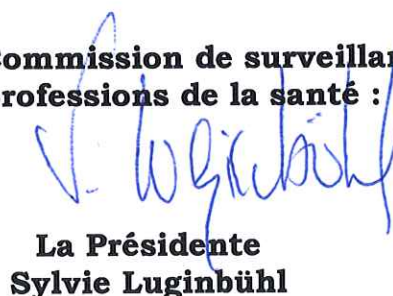 Commission de surveillan
rofessions de la santé :
S. Luginbühl
La Présidente
Sylvie Luginbühl